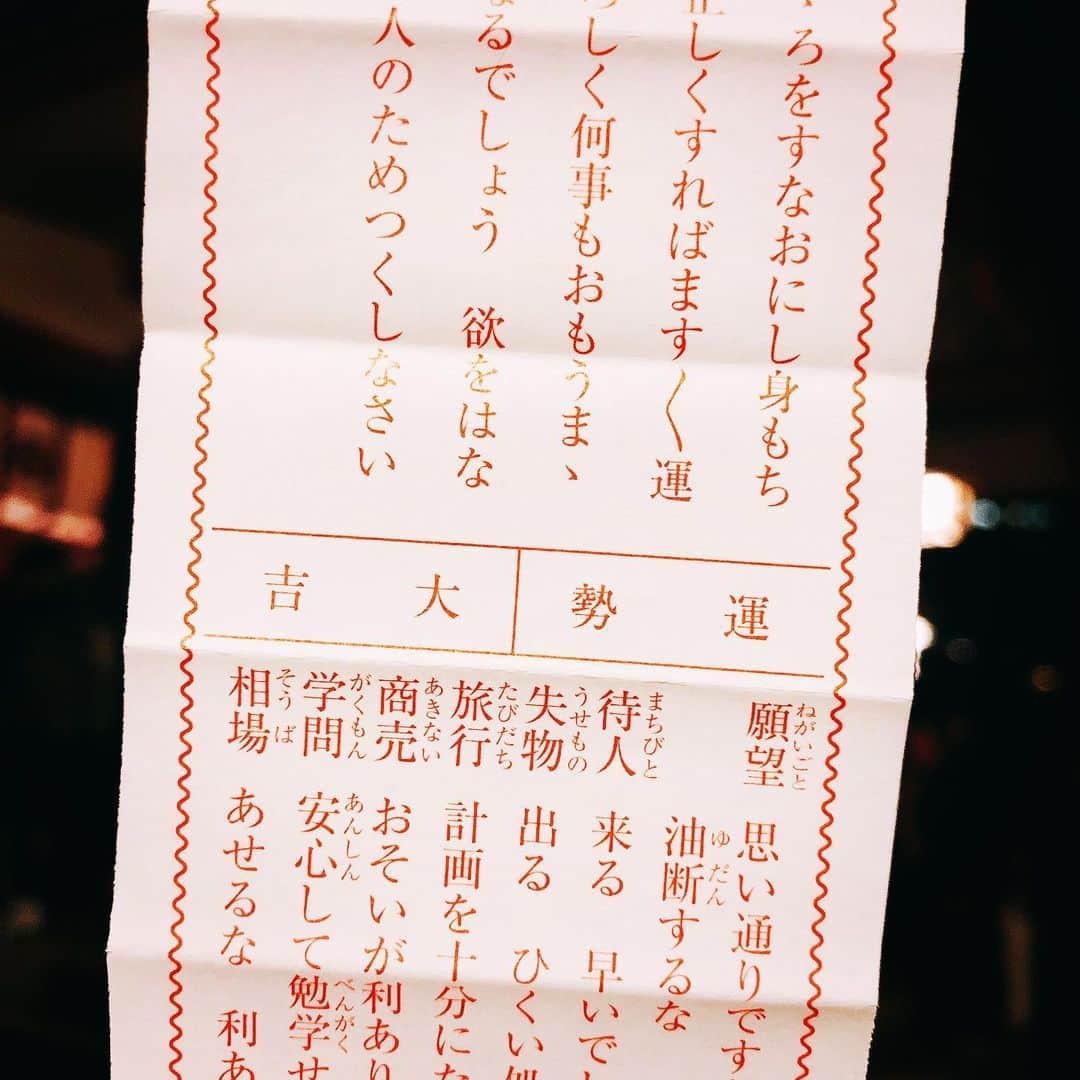 ゝろをすなおにし身もち
正しくすればます〱運
ろしく何事もおもうまゝ
なるでしょう 欲をはな
人のためつくしなさい
運勢 大吉
願望 ねがいごと 思い通りです
油断するな ゆだん
待人 まちびと 来る 早いで
失物 うせもの 出る ひくい処
旅行 たびだち 計画を十分に
商売 あきない おそいが利あり
学問 がくもん 安心して勉学せ あんしん べんがく
相場 そうば あせるな 利あ